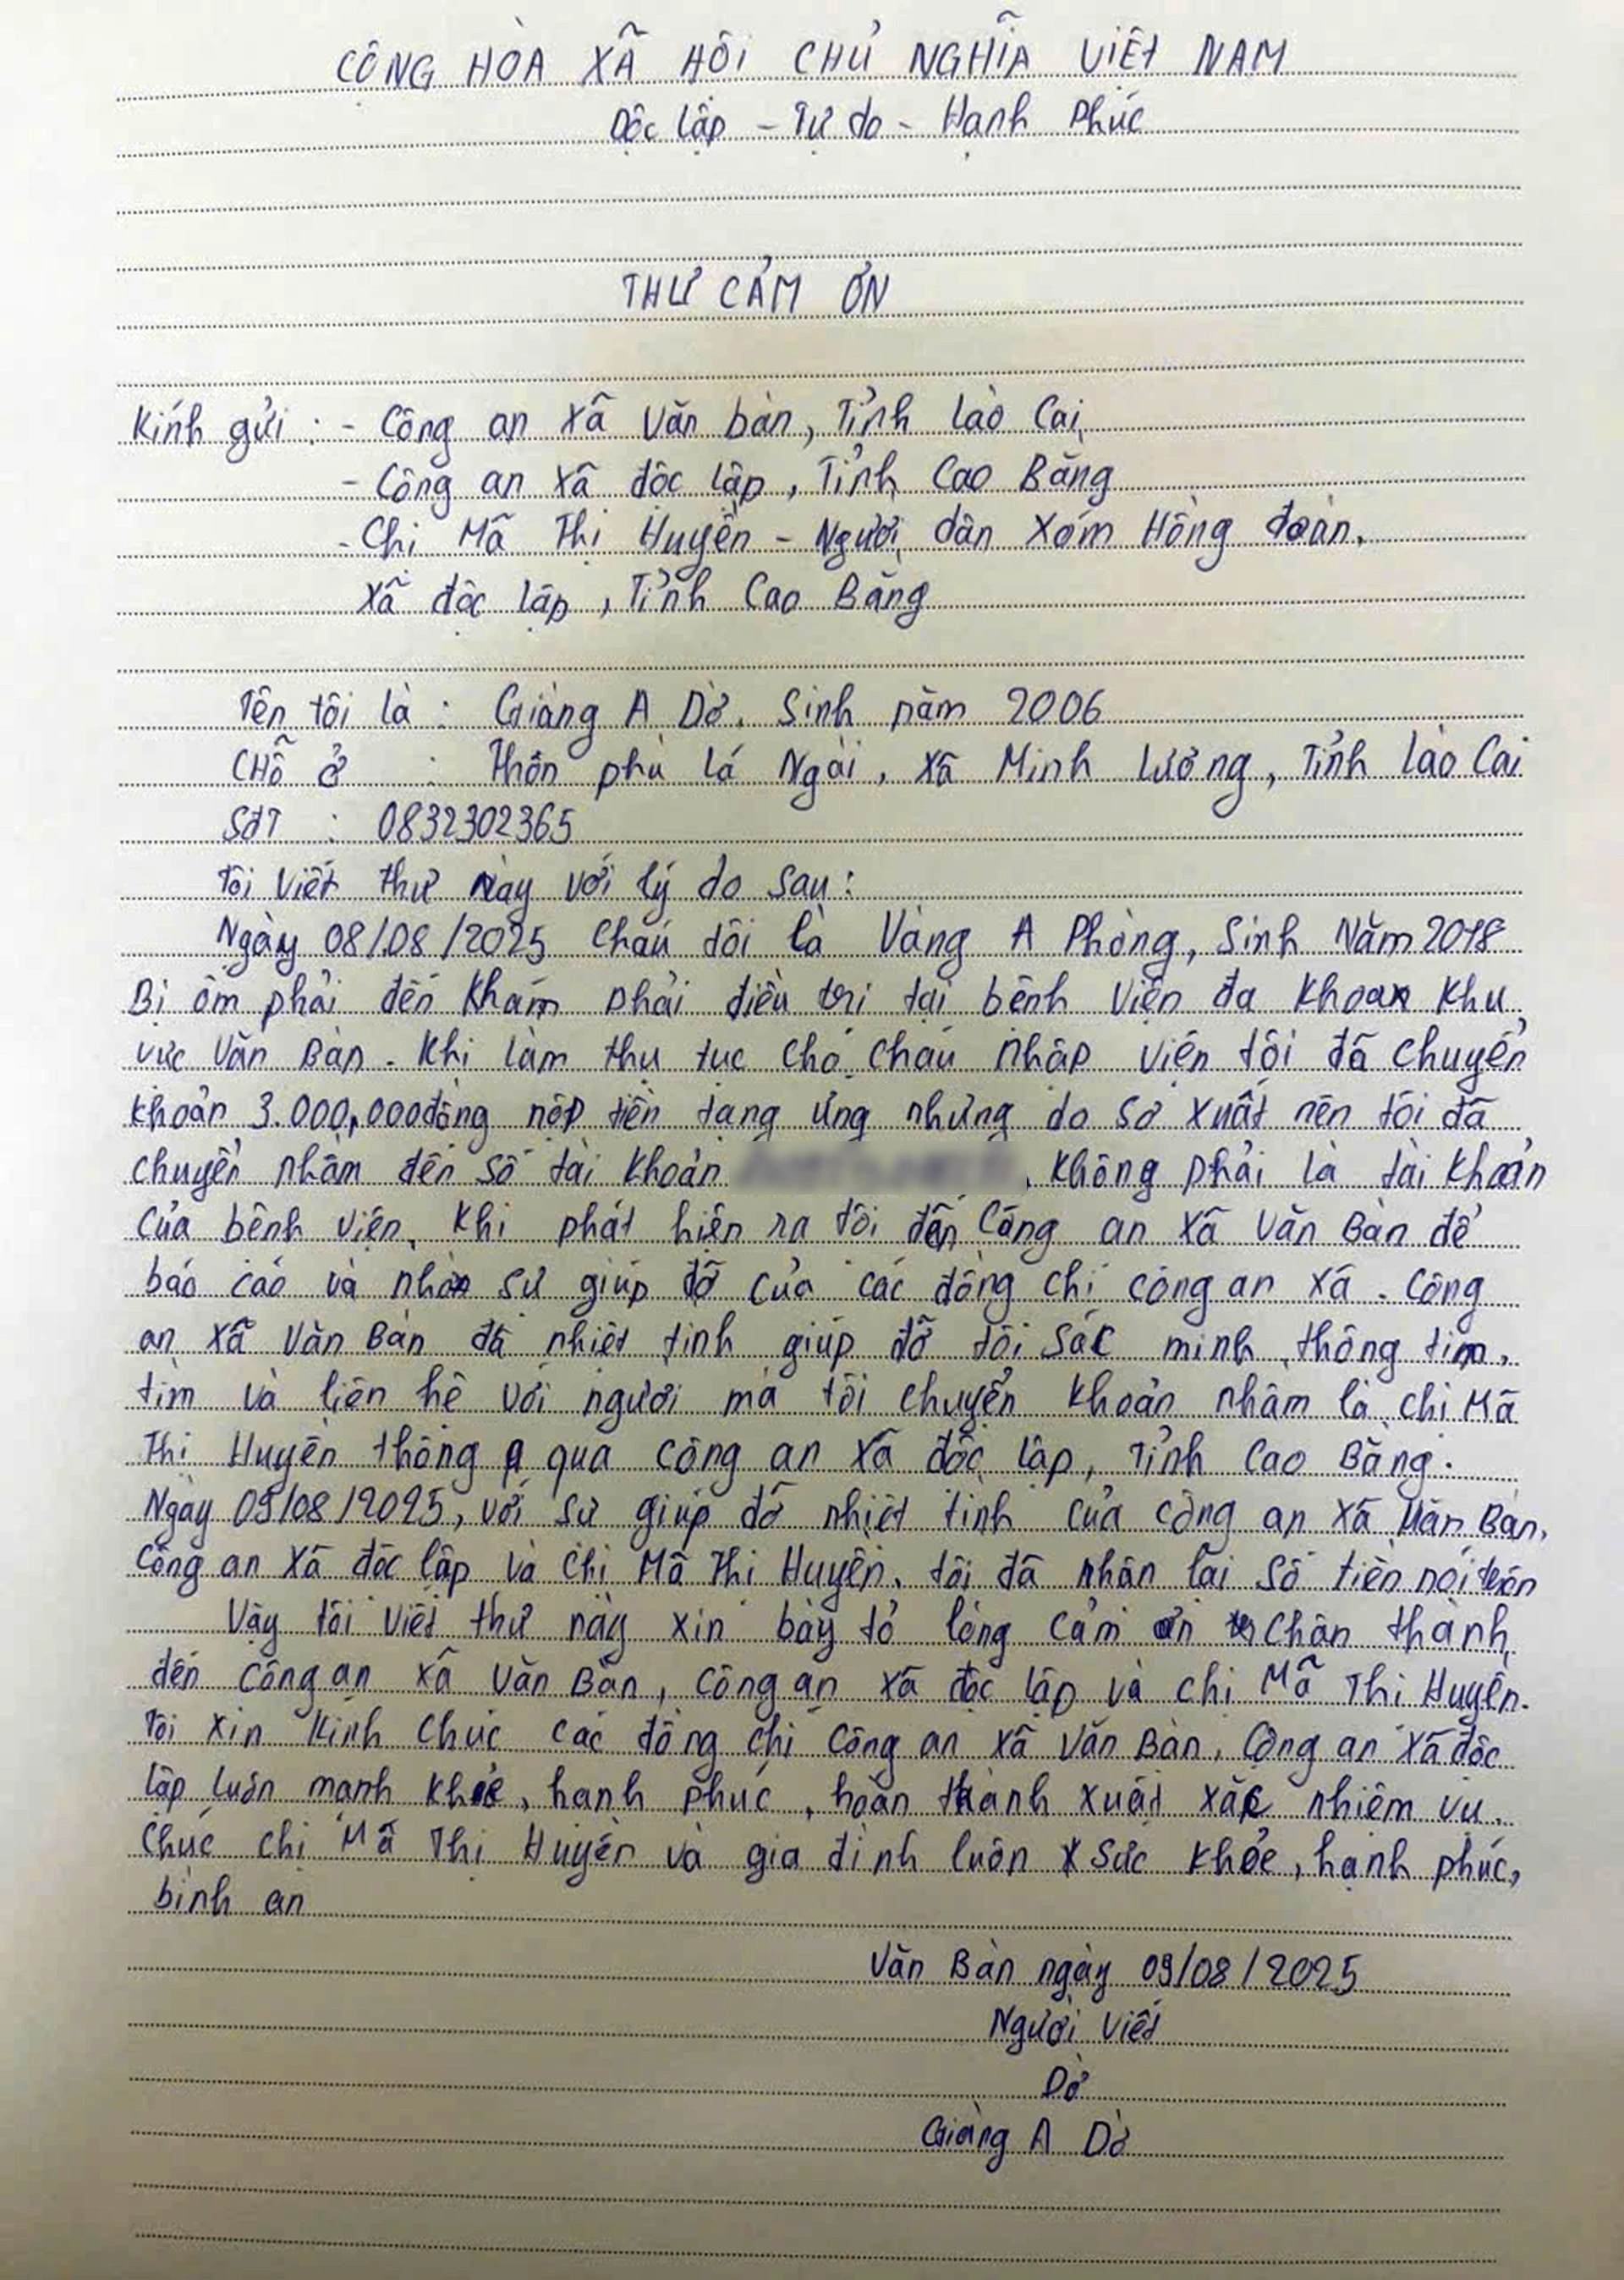 CỘNG HÒA XÃ HỘI CHỦ NGHĨA VIỆT NAM
Độc lập - Tự do - Hạnh Phúc
THƯ CẢM ƠN
Kính gửi : - Công an xã Văn bàn, Tỉnh Lào Cai
- Công an xã độc lập, Tỉnh Cao Bằng
- Chị Mã Thị Huyền - Người dân Xóm Hồng đoàn,
xã độc lập, Tỉnh Cao Bằng
Tên tôi là : Giàng A Dờ. Sinh năm 2006
CHỗ ở : Thôn phù lá Ngài, xã Minh Lương, Tỉnh Lào Cai
SđT : 0832302365
Tôi viết thư này với lý do sau :
Ngày 08/08/2025 cháu tôi là Vàng A Phòng, Sinh Năm 2018
Bị ốm phải đến khám phải điều trị tại bệnh viện đa khoa khu
vực Văn Bàn. Khi làm thụ tục cho cháu nhập viện tôi đã chuyển
khoản 3.000,000đồng nộp tiền tạng ứng nhưng do sơ xuất nên tôi đã
chuyển nhầm đến số tài khoản , không phải là tài khoản
của bệnh viện, khi phát hiện ra tôi đến Công an xã Văn Bàn để
báo cáo và nhờ sự giúp đỡ của các đồng chí công an xã. Công
an xã Văn Bàn đã nhiệt tình giúp đỡ tôi sác minh thông tim,
tìm và liên hệ với người mà tôi chuyển khoản nhầm là chị Mã
Thị Huyền thông qua công an xã độc lập, Tỉnh Cao Bằng.
Ngày 09/08/2025, với sự giúp đỡ nhiệt tình của công an xã Văn Bàn,
Công an xã độc lập và chị Mã Thị Huyền, tôi đã nhận lại số tiền nói trên
Vậy tôi viết thư này xin bày tỏ lòng cảm ơn chân thành
đến công an xã Văn Bàn, công an xã độc lập và chị Mã Thị Huyền.
Tôi xin kính chúc các đồng chí công an xã Văn Bàn, Công an xã độc
lập luôn mạnh khỏe, hạnh phúc, hoàn thành xuất xắc nhiệm vụ.
Chúc chị Mã Thị Huyền và gia đình luôn sức khỏe, hạnh phúc,
bình an
Văn Bàn ngày 09/08/2025
Người viết
Dờ
Giàng A Dờ